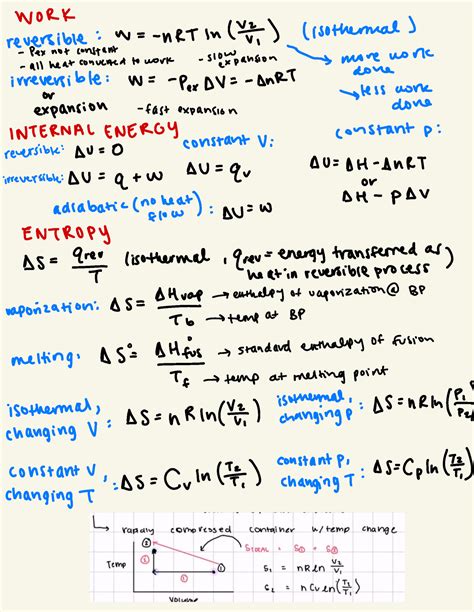 WORK
reversible: w = -nRT ln (V₂/V₁) (isothermal)
- Pex not constant
- All heat converted to work - slow expansion
→ more work done
irreversible: w = -Pex ΔV = -ΔnRT
→ less work done
or
expansion - fast expansion
INTERNAL ENERGY
reversible: ΔU = 0 constant V: constant p:
irreversible: ΔU = q + w ΔU = qv ΔU = ΔH - ΔnRT
or
adiabatic (no heat flow): ΔU = w ΔH - PΔV
ENTROPY
ΔS = qrev/T (isothermal, qrev = energy transferred as heat in reversible process)
vaporization: ΔS = ΔHvap/Tb → enthalpy of vaporization @ BP
→ temp at BP
melting, ΔS° = ΔH°fus/Tf → standard enthalpy of fusion
→ temp at melting point
isothermal, changing V: ΔS = nR ln (V₂/V₁) isothermal, changing P: ΔS = nR ln (P₁/P₂
constant V, changing T: ΔS = Cv ln (T₂/T₁) constant P, changing T: ΔS = Cp ln (T₂/T₁
↳ rapidly compressed container w/ temp change
② Temp ① ① Volume
S₁ = nR ln V₂/V₁
S₂ = n Cv ln (T₂/T₁)